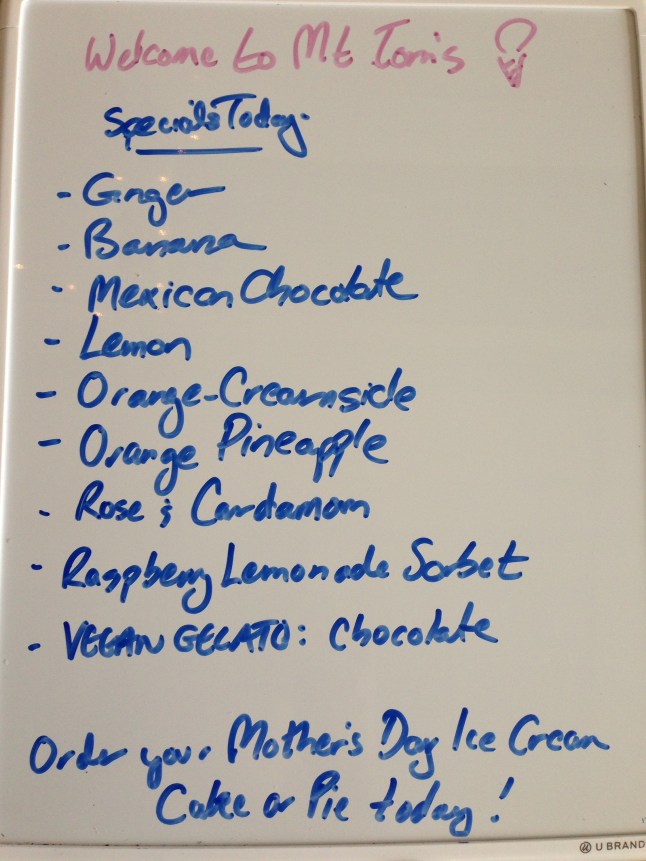 Welcome to Mt Tom's
Specials Today.
- Ginger
- Banana
- Mexican Chocolate
- Lemon
- Orange-Creamside
- Orange Pineapple
- Rose & Cardamom
- Raspberry Lemonade Sorbet
- VEGAN GELATO: Chocolate
Order your Mother's Day Ice Cream
Cake or Pie today!
U BRAND